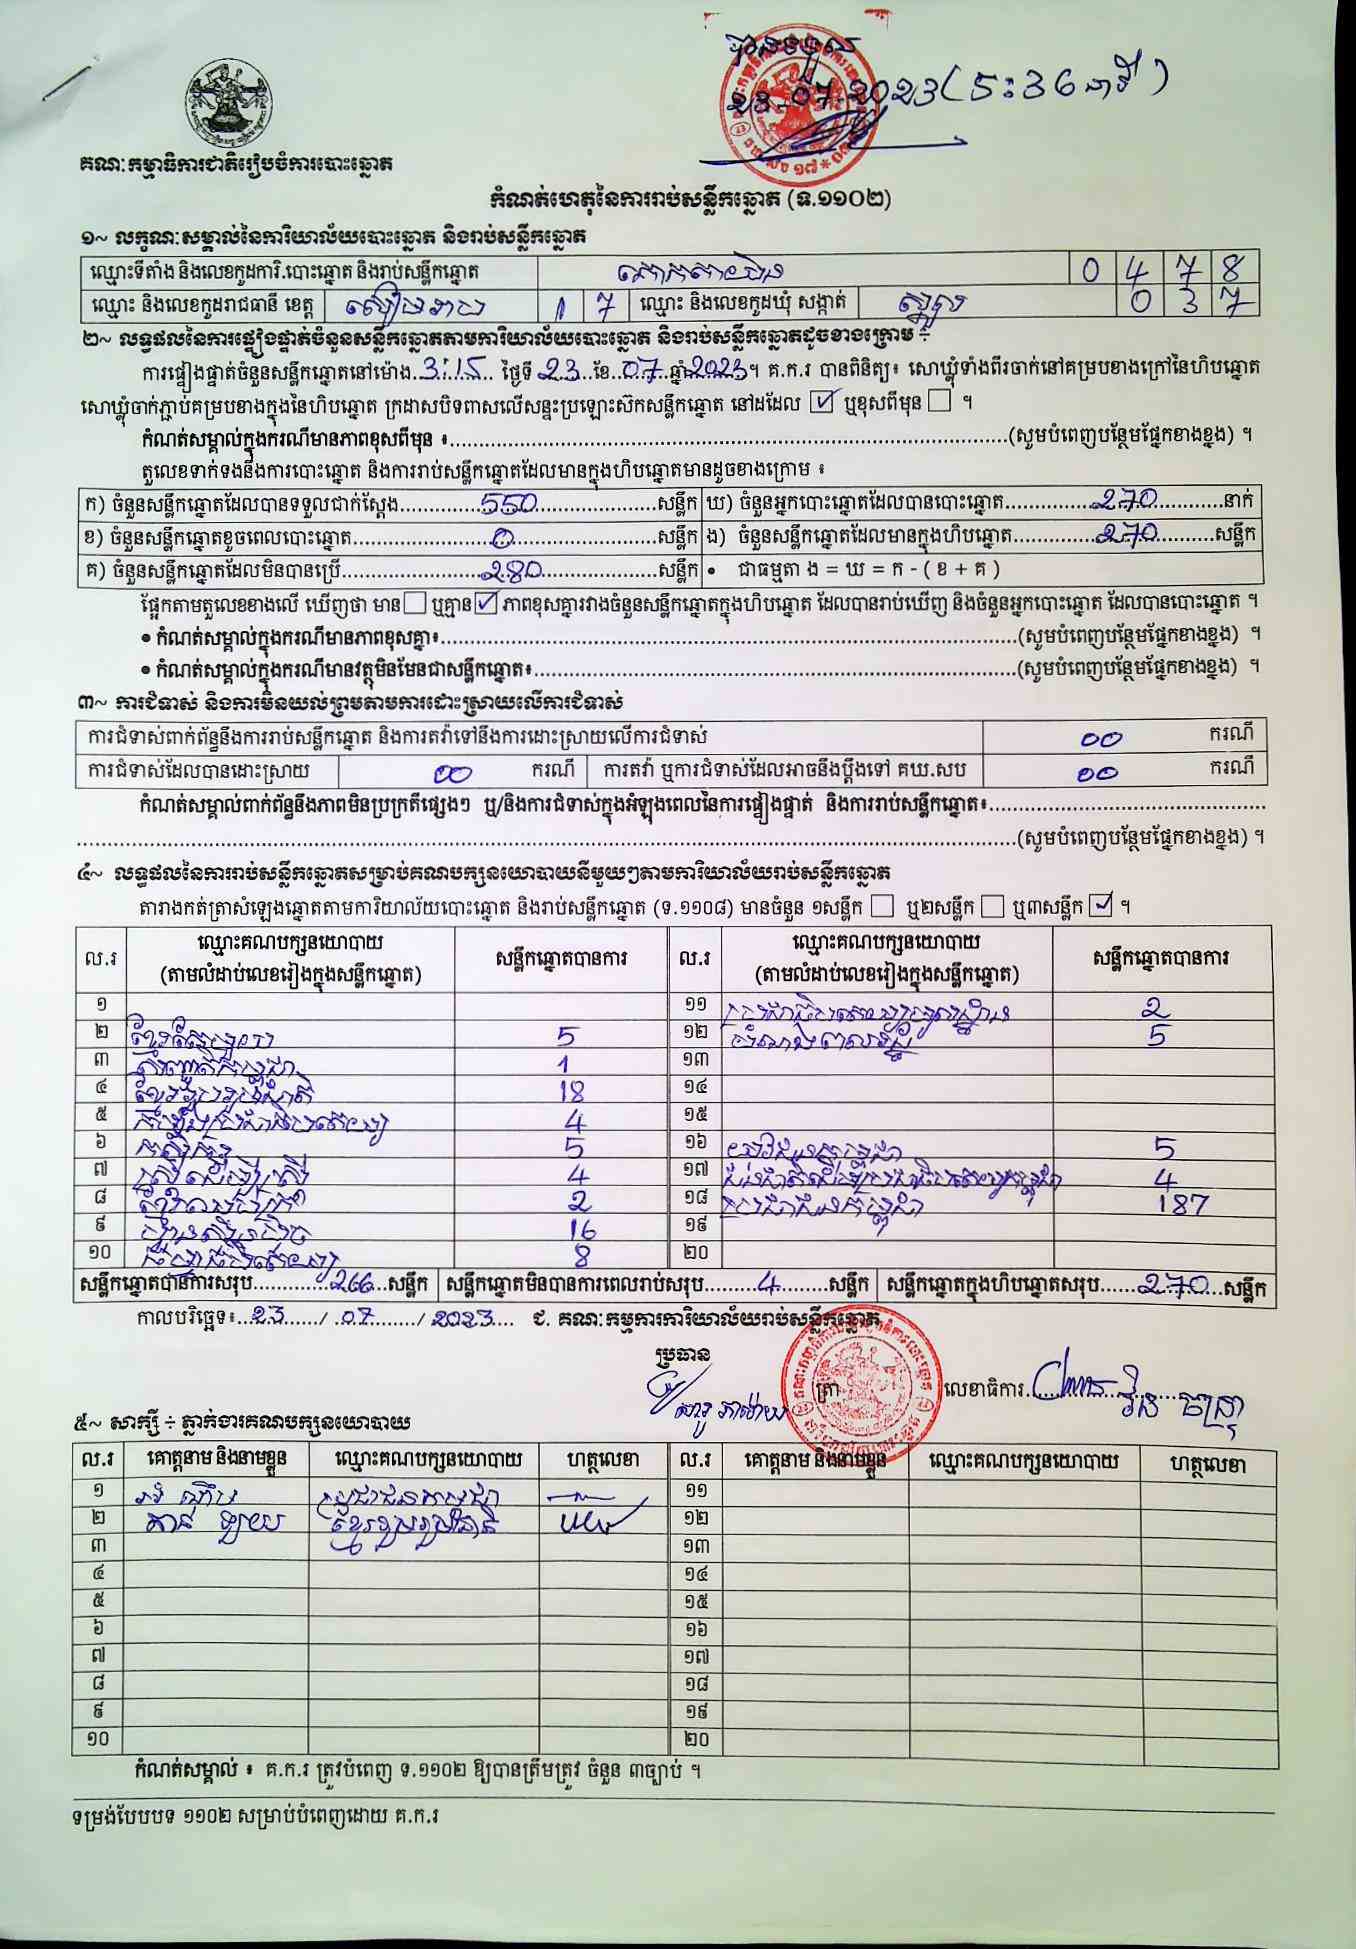 បានទទួល
23-07-2023 (5:36 នាទី)
គណៈកម្មាធិការជាតិរៀបចំការបោះឆ្នោត
កំណត់ហេតុនៃការរាប់សន្លឹកឆ្នោត (ទ.១១០២)
១~ លក្ខណៈសម្គាល់នៃការិយាល័យបោះឆ្នោត និងរាប់សន្លឹកឆ្នោត
ឈ្មោះទីតាំង និងលេខកូដការិ.បោះឆ្នោត និងរាប់សន្លឹកឆ្នោត 0 4 7 8
ឈ្មោះ និងលេខកូដរាជធានី ខេត្ត សៀមរាប 1 7 ឈ្មោះ និងលេខកូដឃុំ សង្កាត់ 0 3 7
២~ លទ្ធផលនៃការផ្ទៀងផ្ទាត់ចំនួនសន្លឹកឆ្នោតតាមការិយាល័យបោះឆ្នោត និងរាប់សន្លឹកឆ្នោតដូចខាងក្រោម ÷
ការផ្ទៀងផ្ទាត់ចំនួនសន្លឹកឆ្នោតនៅម៉ោង 3:15 ថ្ងៃទី 23 ខែ 07 ឆ្នាំ 2023 ។ គ.ក.រ បានពិនិត្យ៖ សោឃ្លុំទាំងពីរចាក់នៅគម្របខាងក្រៅនៃហិបឆ្នោត
សោឃ្លុំចាក់ភ្ជាប់គម្របខាងក្នុងនៃហិបឆ្នោត ក្រដាសបិទពាសលើសន្ទះប្រឡោះស៊កសន្លឹកឆ្នោត នៅដដែល ☑ ឬខុសពីមុន ☐ ។
កំណត់សម្គាល់ក្នុងករណីមានភាពខុសពីមុន ៖ (សូមបំពេញបន្ថែមផ្នែកខាងខ្នង) ។
តួលេខទាក់ទងនឹងការបោះឆ្នោត និងការរាប់សន្លឹកឆ្នោតដែលមានក្នុងហិបឆ្នោតមានដូចខាងក្រោម ៖
ក) ចំនួនសន្លឹកឆ្នោតដែលបានទទួលជាក់ស្តែង 550 សន្លឹក ឃ) ចំនួនអ្នកបោះឆ្នោតដែលបានបោះឆ្នោត 270 នាក់
ខ) ចំនួនសន្លឹកឆ្នោតខូចពេលបោះឆ្នោត 0 សន្លឹក ង) ចំនួនសន្លឹកឆ្នោតដែលមានក្នុងហិបឆ្នោត 270 សន្លឹក
គ) ចំនួនសន្លឹកឆ្នោតដែលមិនបានប្រើ 280 សន្លឹក • ជាធម្មតា ង = ឃ = ក - ( ខ + គ )
ផ្អែកតាមតួលេខខាងលើ ឃើញថា មាន ☐ ឬគ្មាន ☑ ភាពខុសគ្នារវាងចំនួនសន្លឹកឆ្នោតក្នុងហិបឆ្នោត ដែលបានរាប់ឃើញ និងចំនួនអ្នកបោះឆ្នោត ដែលបានបោះឆ្នោត ។
• កំណត់សម្គាល់ក្នុងករណីមានភាពខុសគ្នា៖ (សូមបំពេញបន្ថែមផ្នែកខាងខ្នង) ។
• កំណត់សម្គាល់ក្នុងករណីមានវត្ថុមិនមែនជាសន្លឹកឆ្នោត៖ (សូមបំពេញបន្ថែមផ្នែកខាងខ្នង) ។
៣~ ការជំទាស់ និងការមិនយល់ព្រមតាមការដោះស្រាយលើការជំទាស់
ការជំទាស់ពាក់ព័ន្ធនឹងការរាប់សន្លឹកឆ្នោត និងការតវ៉ាទៅនឹងការដោះស្រាយលើការជំទាស់ 00 ករណី
ការជំទាស់ដែលបានដោះស្រាយ 00 ករណី ការតវ៉ា ឬការជំទាស់ដែលអាចនឹងប្តឹងទៅ គឃ.សប 00 ករណី
កំណត់សម្គាល់ពាក់ព័ន្ធនឹងភាពមិនប្រក្រតីផ្សេងៗ ឬ/និងការជំទាស់ក្នុងអំឡុងពេលនៃការផ្ទៀងផ្ទាត់ និងការរាប់សន្លឹកឆ្នោត៖
(សូមបំពេញបន្ថែមផ្នែកខាងខ្នង) ។
៤~ លទ្ធផលនៃការរាប់សន្លឹកឆ្នោតសម្រាប់គណបក្សនយោបាយនីមួយៗតាមការិយាល័យរាប់សន្លឹកឆ្នោត
តារាងកត់ត្រាសំឡេងឆ្នោតតាមការិយាល័យបោះឆ្នោត និងរាប់សន្លឹកឆ្នោត (ទ.១១០៨) មានចំនួន ១សន្លឹក ☐ ឬ២សន្លឹក ☐ ឬ៣សន្លឹក ☑ ។
ល.រ ឈ្មោះគណបក្សនយោបាយ (តាមលំដាប់លេខរៀងក្នុងសន្លឹកឆ្នោត) សន្លឹកឆ្នោតបានការ ល.រ ឈ្មោះគណបក្សនយោបាយ (តាមលំដាប់លេខរៀងក្នុងសន្លឹកឆ្នោត) សន្លឹកឆ្នោតបានការ
១ ១១ 2
២ 5 ១២ 5
៣ 1 ១៣
៤ ខ្មែររួបរួមជាតិ 18 ១៤
៥ 4 ១៥
៦ កសិករ 5 ១៦ យុវជនកម្ពុជា 5
៧ 4 ១៧ 4
៨ 2 ១៨ ប្រជាជនកម្ពុជា 187
៩ ហ្វ៊ុនស៊ិនប៉ិច 16 ១៩
១០ ធម្មាធិបតេយ្យ 8 ២០
សន្លឹកឆ្នោតបានការសរុប 266 សន្លឹក សន្លឹកឆ្នោតមិនបានការពេលរាប់សរុប 4 សន្លឹក សន្លឹកឆ្នោតក្នុងហិបឆ្នោតសរុប 270 សន្លឹក
កាលបរិច្ឆេទ៖ 23 / 07 / 2023 ជ. គណៈកម្មការការិយាល័យរាប់សន្លឹកឆ្នោត
ប្រធាន
ត្រា
លេខាធិការ
៥~ សាក្សី ÷ ភ្នាក់ងារគណបក្សនយោបាយ
ល.រ គោត្តនាម និងនាមខ្លួន ឈ្មោះគណបក្សនយោបាយ ហត្ថលេខា ល.រ គោត្តនាម និងនាមខ្លួន ឈ្មោះគណបក្សនយោបាយ ហត្ថលេខា
១ ប្រជាជនកម្ពុជា ១១
២ ខ្មែររួបរួមជាតិ ១២
៣ ១៣
៤ ១៤
៥ ១៥
៦ ១៦
៧ ១៧
៨ ១៨
៩ ១៩
១០ ២០
កំណត់សម្គាល់ ៖ គ.ក.រ ត្រូវបំពេញ ទ.១១០២ ឱ្យបានត្រឹមត្រូវ ចំនួន ៣ច្បាប់ ។
ទម្រង់បែបបទ ១១០២ សម្រាប់បំពេញដោយ គ.ក.រ